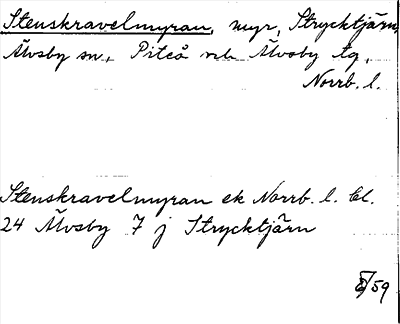 Stenskravelmyran, myr, Strycktjärn,
Älvsby sn, Piteå och Älvsby tg,
Norrb. l.
Stenskravelmyran ek Norrb. l. bl.
24 Älvsby 7 j Strycktjärn
/59